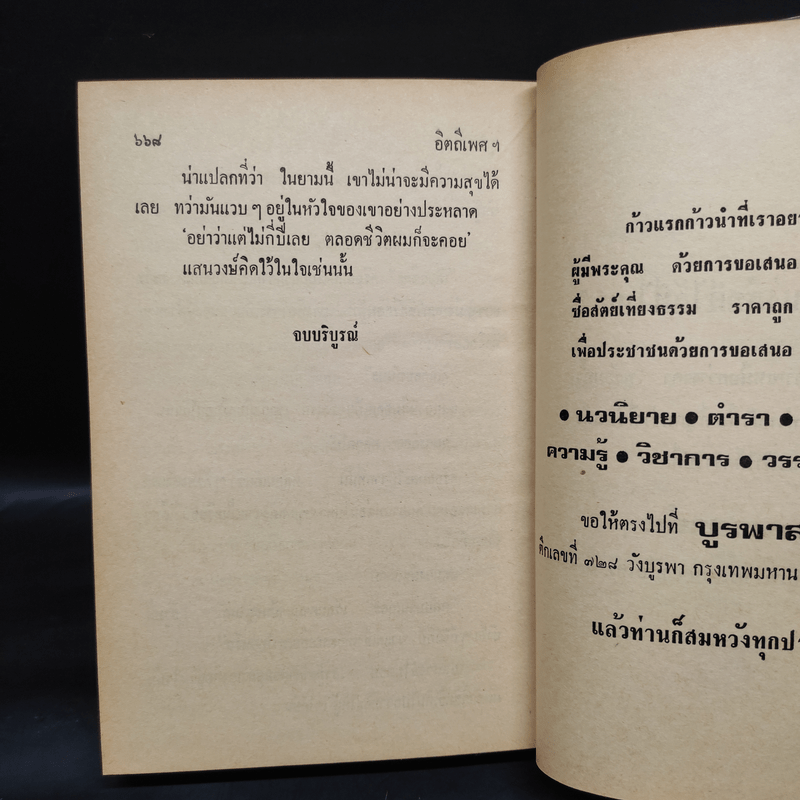 ๖๖๘ อิตถีเพศ ฯ
น่าแปลกที่ว่า ในยามนี้ เขาไม่น่าจะมีความสุขได้
เลย ทว่ามันแวบ ๆ อยู่ในหัวใจของเขาอย่างประหลาด
'อย่าว่าแต่ไม่กี่ปีเลย ตลอดชีวิตผมก็จะคอย'
แสนวงษ์คิดไว้ในใจเช่นนั้น
จบบริบูรณ์
ก้าวแรกก้าวนำที่เรา
ผู้มีพระคุณ ด้วยการขอเสนอ
ซื่อสัตย์เที่ยงธรรม ราคาถูก
เพื่อประชาชนด้วยการขอเสนอ
● นวนิยาย ● ตำรา ●
ความรู้ ● วิชาการ ●
ขอให้ตรงไปที่ บูรพา
ตึกเลขที่ ๗๒๘ วังบูรพา กรุงเทพมหาน
แล้วท่านก็สมหวังทุก